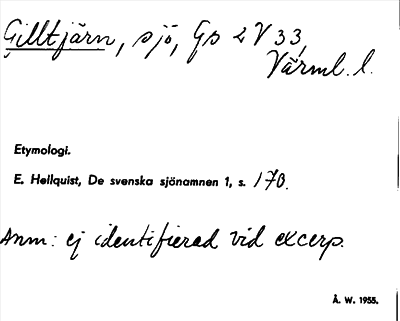 Gilltjärn, sjö, Gs 2 V 33,
Värml. l.
Etymologi.
E. Hellquist, De svenska sjönamnen 1, s. 170.
Anm: ej identifierad vid excerp.
Å. W. 1955.